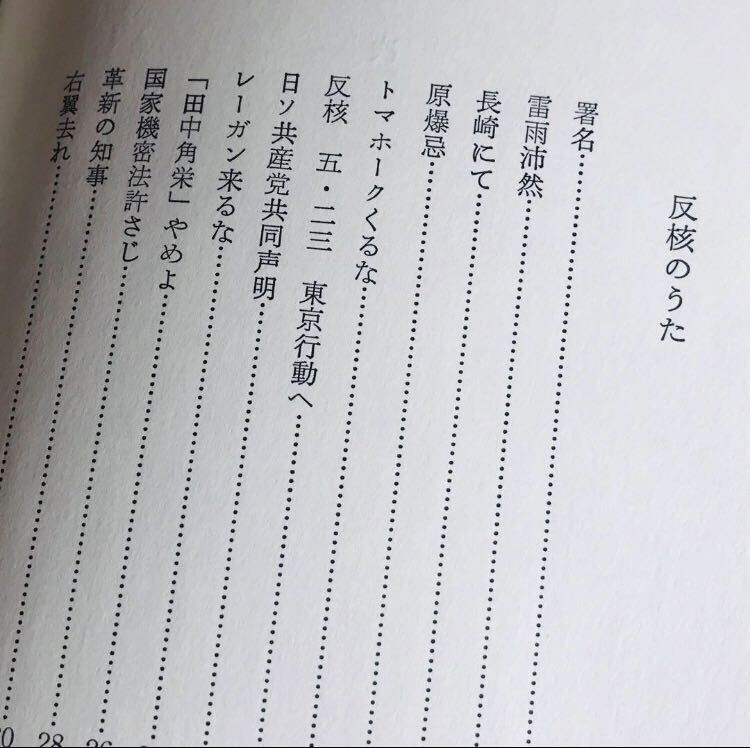 反核のうた
署名
雷雨沛然
長崎にて
原爆忌
トマホークくるな
反核　五・二三　東京行動へ
日ソ共産党共同声明
レーガン来るな
「田中角栄」やめよ
国家機密法許さじ
革新の知事
右翼去れ
28